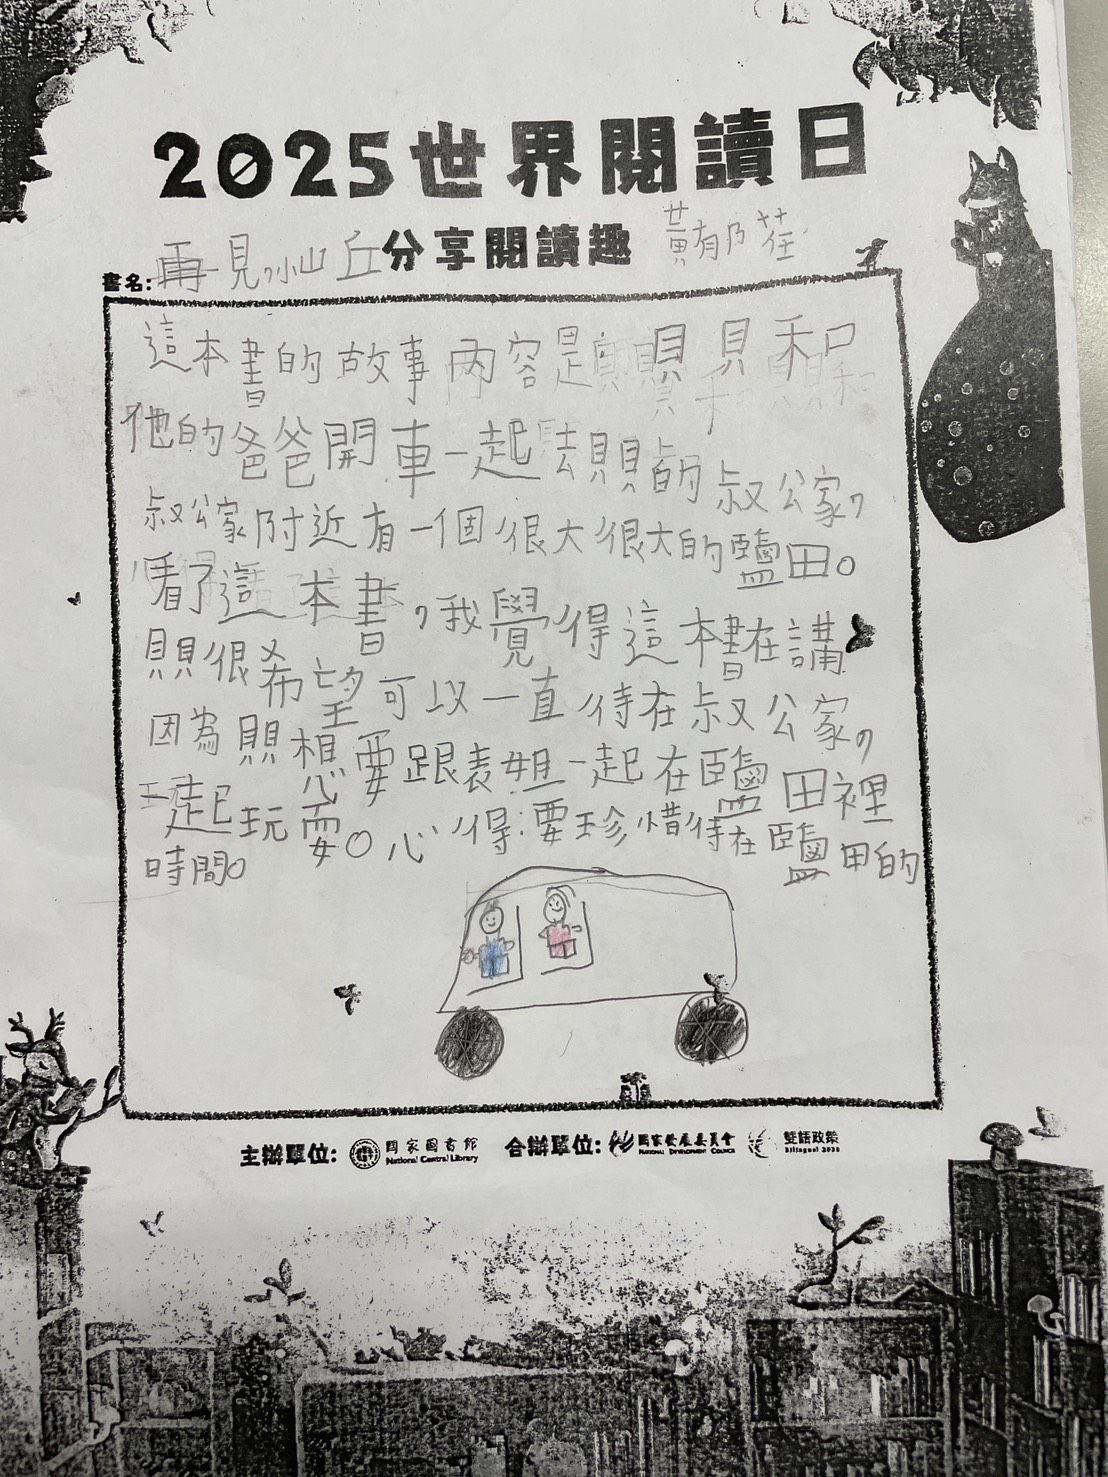 2025世界閱讀日
分享閱讀趣
書名:再見小山丘
這本書的故事內容是貝貝和
他的爸爸開車一起去貝貝的叔公家,
叔公家附近有一個很大很大的鹽田。
看了這本書,我覺得這本書在講
貝貝很希望可以一直待在叔公家,
因為貝貝想要跟表姐一起在鹽田裡
一起玩耍。心得:要珍惜待在鹽田的
時間。
主辦單位: 國家圖書館 National Central Library 合辦單位: 國家發展委員會 NATIONAL DEVELOPMENT COUNCIL 雙語政策 Bilingual 2030